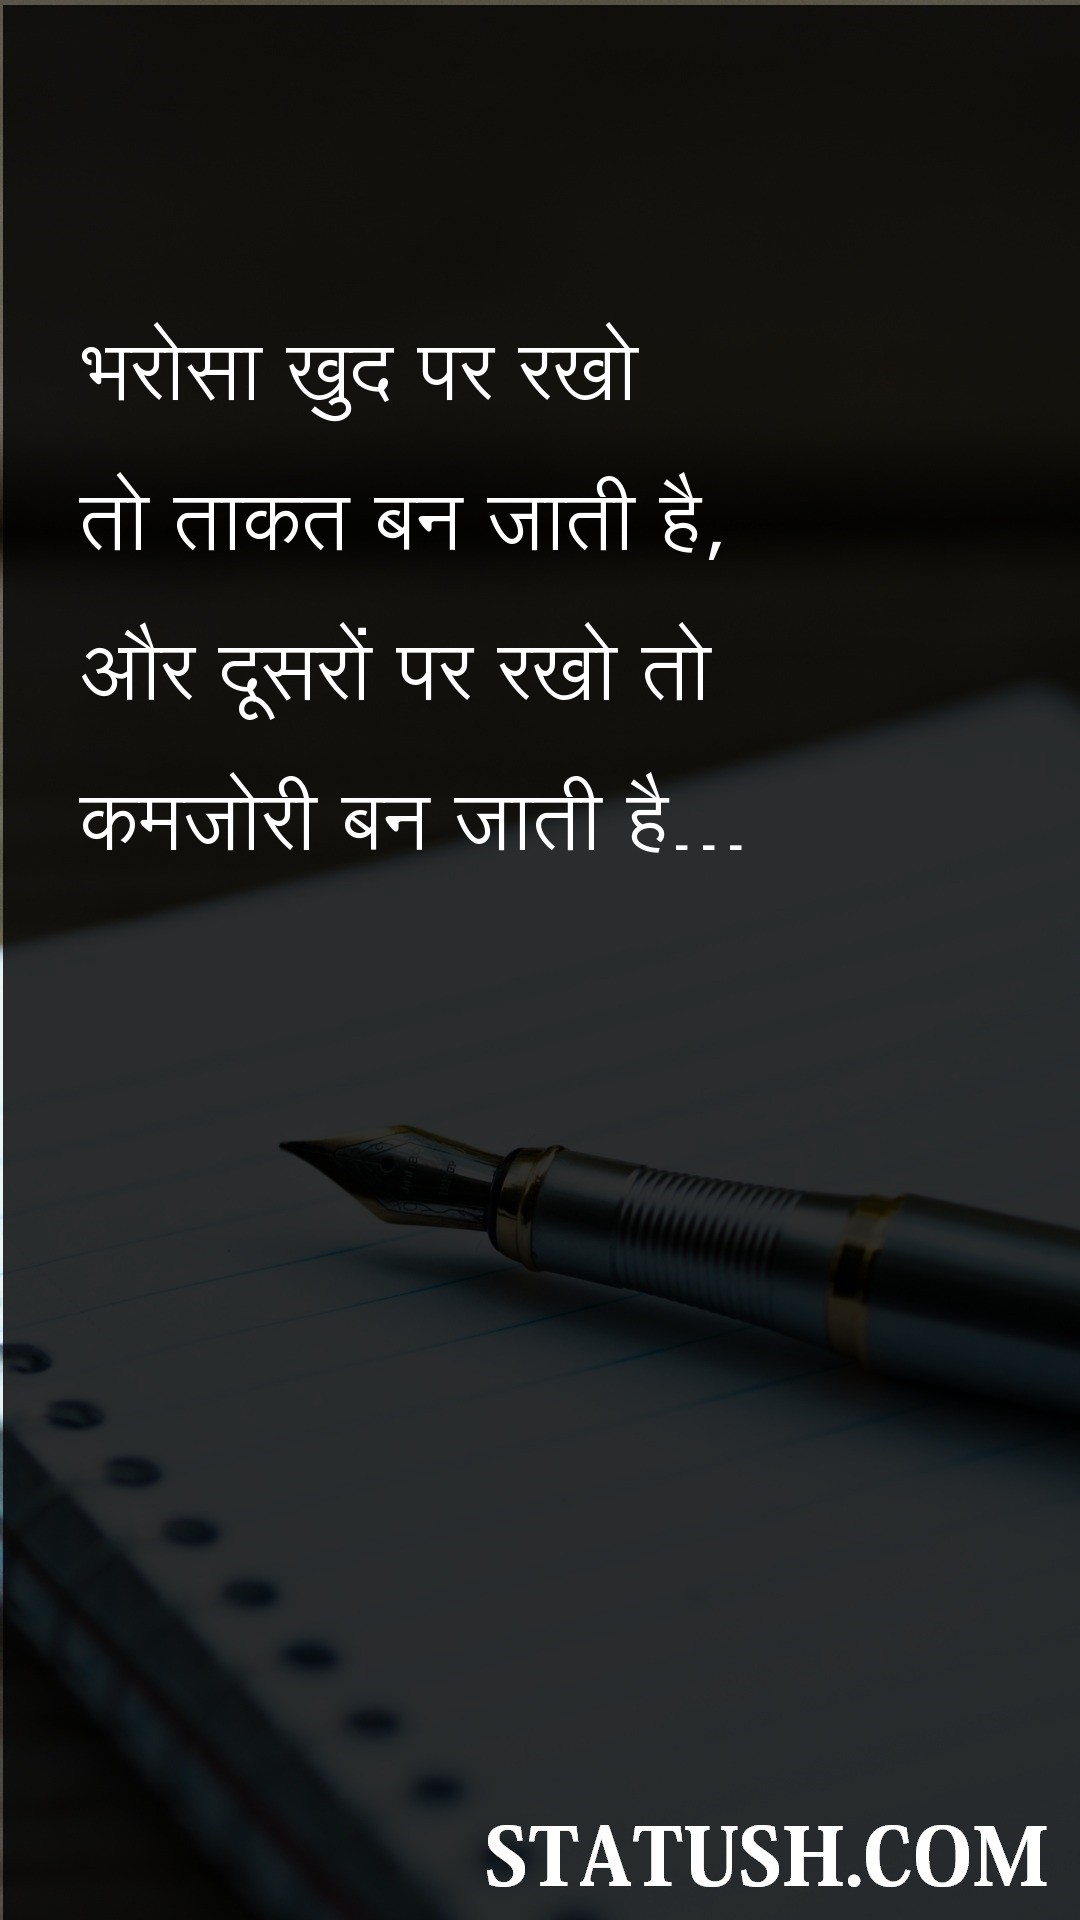 भरोसा खुद पर रखो
तो ताकत बन जाती है,
और दूसरों पर रखो तो
कमजोरी बन जाती है---
STATUSH.COM